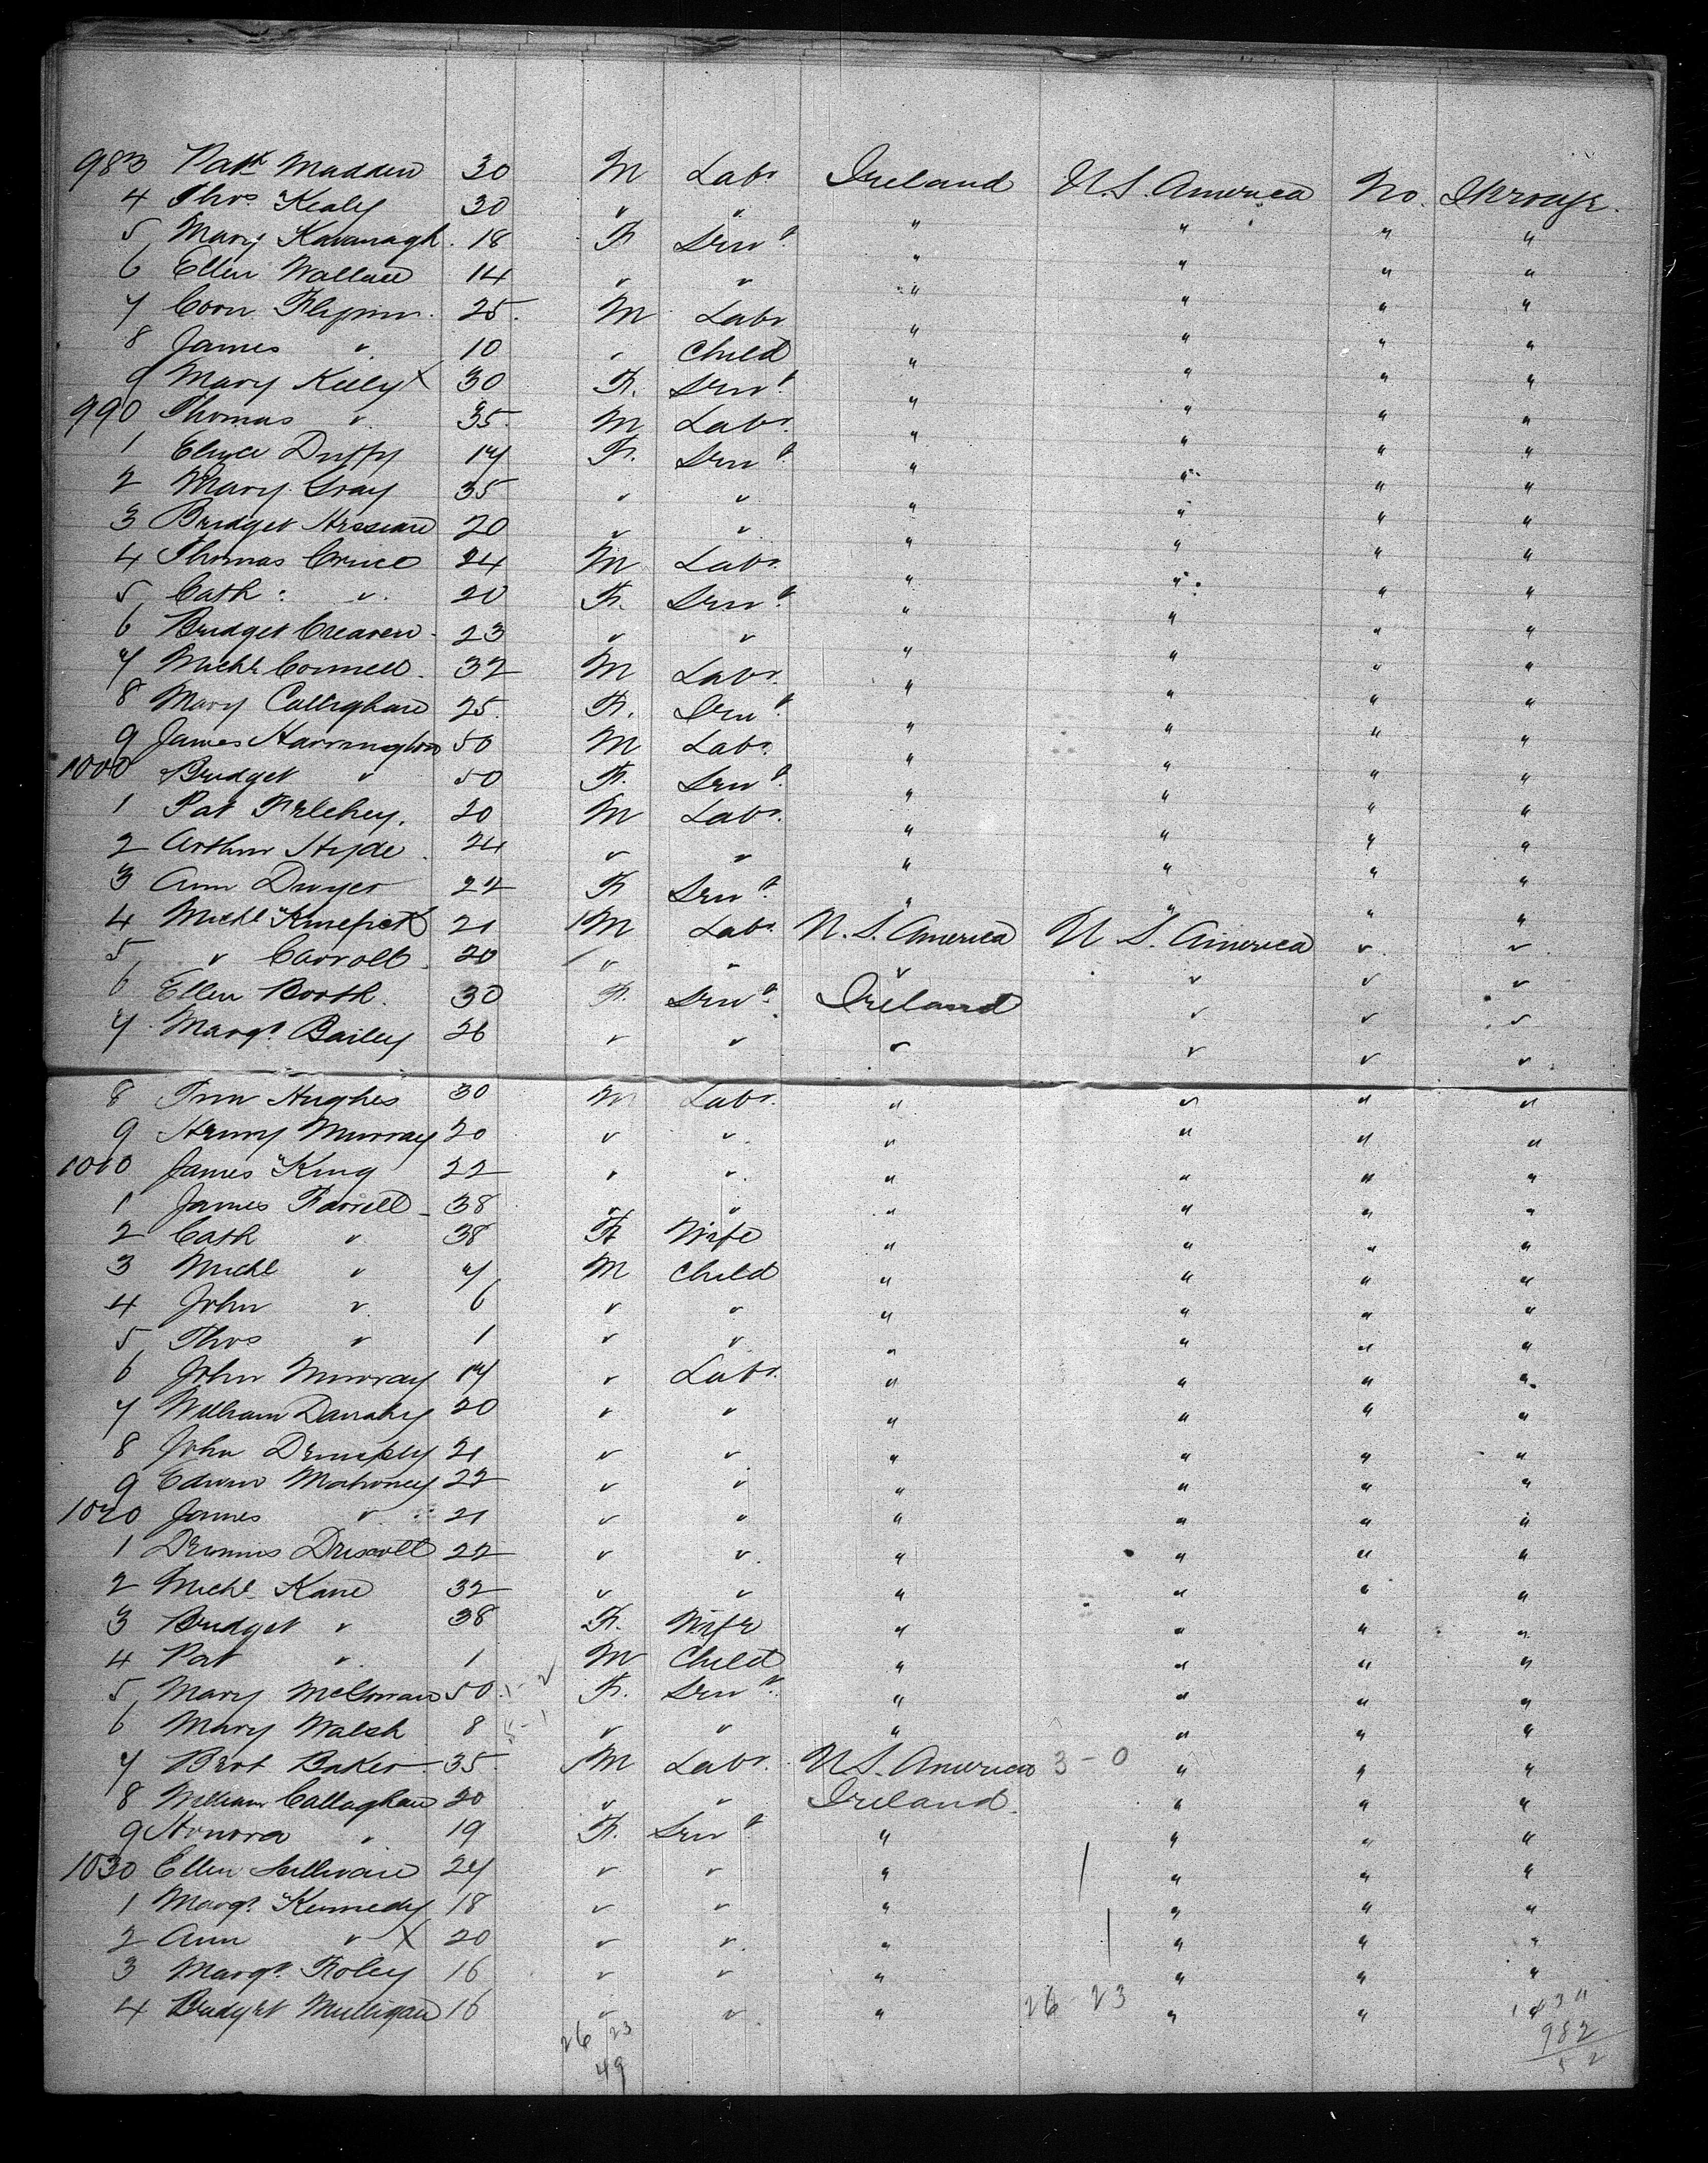 983 Patk Madden 30 M Labr Ireland U.S. America No. Steerage.
4 Thos Kealy 30 " " " " " "
5 Mary Kavanagh 18 F Servt " " " "
6 Ellen Wallace 14 " " " " " "
7 Corn Flynn 25 M Labr " " " "
8 James " 10 " Child " " " "
9 Mary Kiely X 30 F. Servt " " " "
990 Thomas " 35 M Labr " " " "
1 Duffy 17 F. Servt " " " "
2 Mary Gray 35 " " " " " "
3 Bridget 20 " " " " " "
4 Thomas Cruce 24 M Labr " " " "
5 Cath: " 20 F. Servt " " " "
6 Bridget Creaven 23 " " " " " "
7 Michl Connell 32 M Labr " " " "
8 Mary Callighan 25 F. Servt " " " "
9 James Harrington 50 M Labr " " " "
1000 Bridget " 50 F. Servt " " " "
1 Pat 20 M Labr " " " "
2 Arthur Hyde 24 " " " " " "
3 Ann Dwyer 22 F Servt " " " "
4 Michl 21 M Labr U.S. America U.S. America " "
5 " Carroll 20 " " " " " "
6 Ellen Booth 30 F. Servt Ireland " " "
7 Margt Bailey 26 " " " " " "
8 Hughes 30 M Labr " " " "
9 Henry Murray 20 " " " " " "
1010 James King 22 " " " " " "
1 James Farrell 38 " " " " " "
2 Cath " 38 F Wife " " " "
3 Michl " 7 M Child " " " "
4 John " 6 " " " " " "
5 Thos " 1 " " " " " "
6 John Murray 17 " Labr " " " "
7 William 20 " " " " " "
8 John 21 " " " " " "
9 Edwin Mahoney 22 " " " " " "
1020 James " 21 " " " " " "
1 Dennis Driscoll 22 " " " " " "
2 Michl Kane 32 " " " " " "
3 Bridget " 38 F. Wife " " " "
4 Pat " 1 M Child " " " "
5 Mary 50 F. Servt " " " "
6 Mary Walsh 8 " " " " " "
7 Baker 35 M Labr U.S. America 3-0 " " "
8 William Callaghan 20 " " Ireland " " "
9 Honora " 19 F. Servt " " " "
1030 Ellen Sullivan 27 " " " " " "
1 Margt Kennedy 18 " " " " " "
2 Ann " X 20 " " " " " "
3 Margt Foley 16 " " " " " "
4 Bridget Mulligan 16 " " " 26-23 " " 1034
26 23 982
49 52